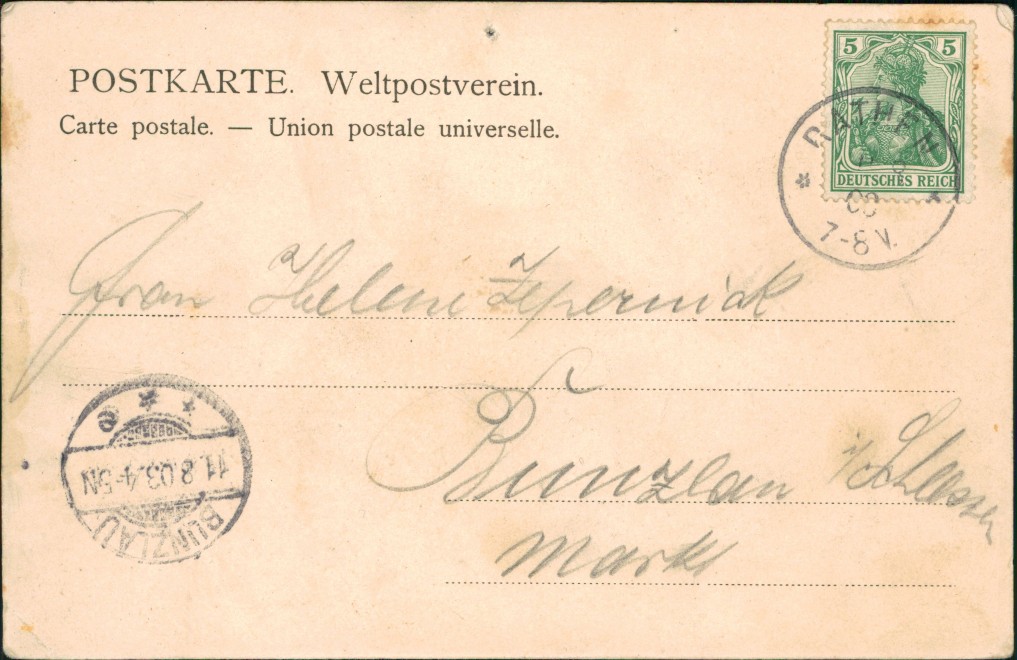 POSTKARTE. Weltpostverein.
Carte postale. — Union postale universelle.
5 5
DEUTSCHES REICH
RATHEN
7-8 V.
Frau Helene Zepernick
Bunzlau i/Schlesien
Markt
11.8.03.4-5N
BUNZLAU